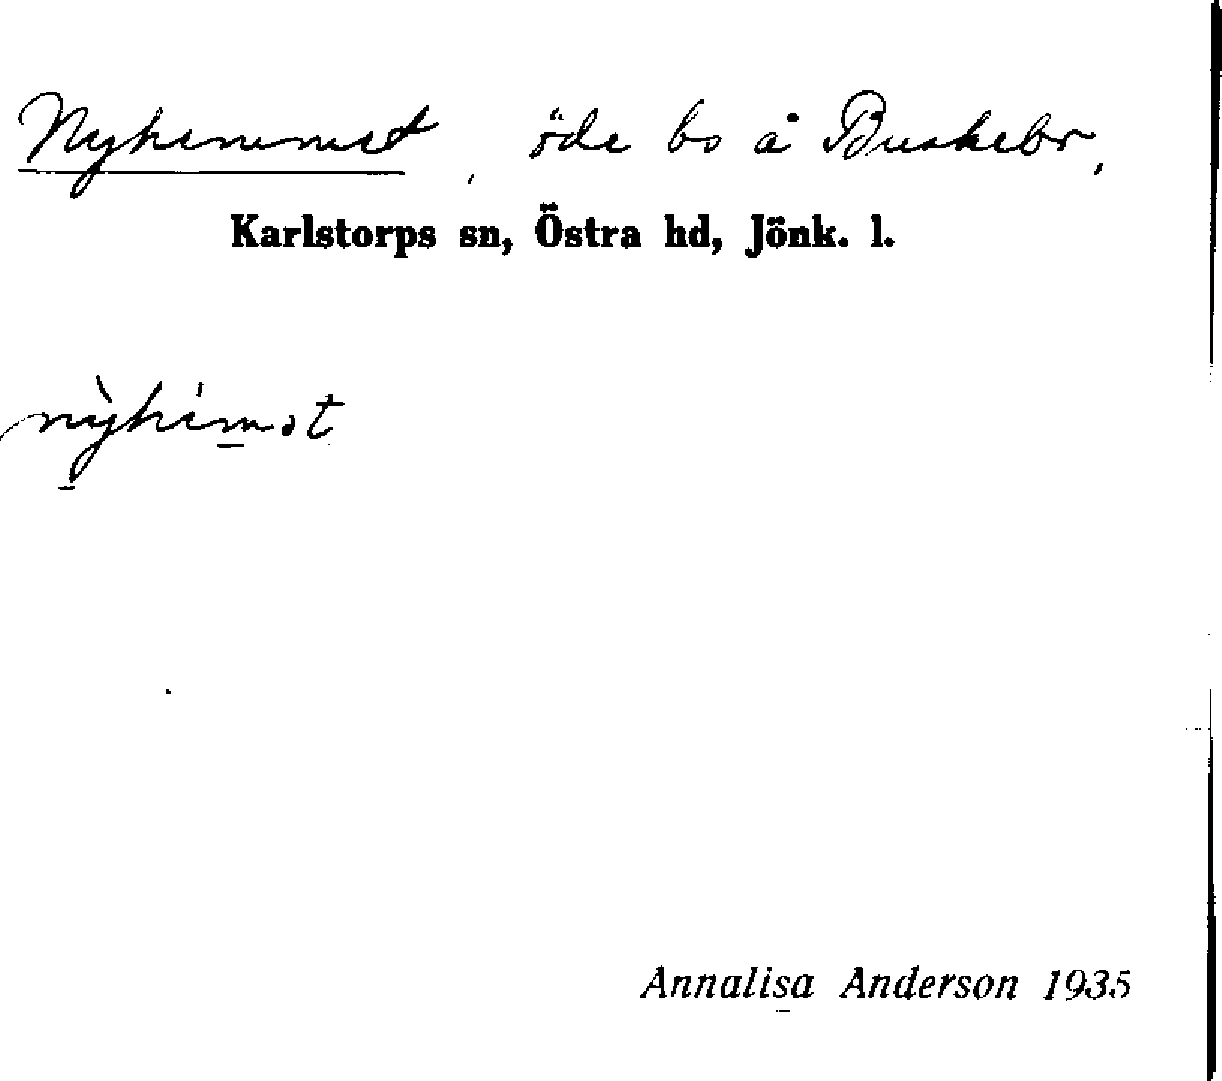 Nyhemmet, öde bo å Buskebo,
Karlstorps sn, Östra hd, Jönk. l.
nỳhímət
Annalisa Anderson 1935